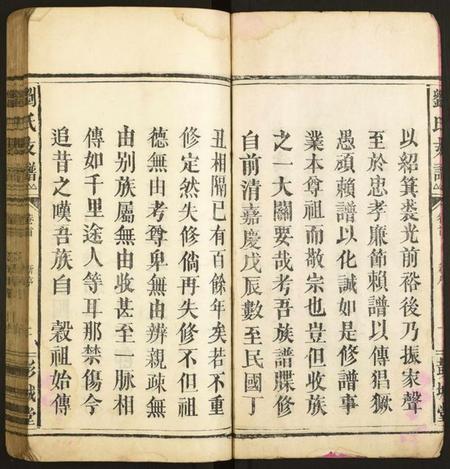 以紹箕裘光前裕後乃振家聲
至於忠孝廉節賴譜以傳猖獗
愚頑賴譜以化誠如是修譜事
業本尊祖而敬宗也豈但收族
之一大關要哉考吾族譜牒修
自前清嘉慶戊辰數至民國丁
丑相隔已有百餘年矣若不重
修定然失修倘再失修不但祖
德無由考尊卑無由辨親疎無
由别族屬無由收甚至一脉相
傳如千里途人等耳那禁傷今
追昔之嘆吾族自　穀祖始傳
劉氏支譜
卷首
彭城堂